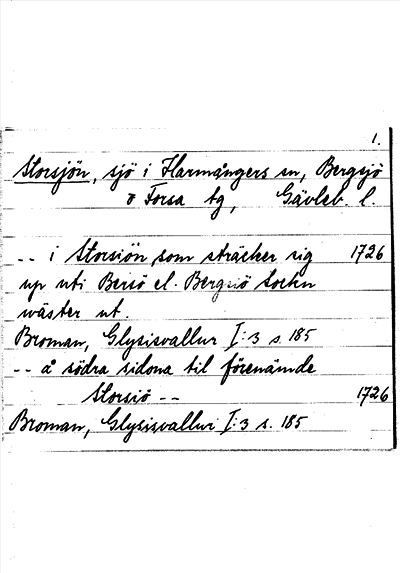 1.
Storsjön, sjö i Harmångers sn, Bergsjö
o Forsa tg, Gävleb. l.
-- i Storsiön som sträcker sig 1726
up uti Bersö el. Bergsiö Sockn
wäster ut.
Broman, Glysisvallur I:3 s. 185
-- å södra sidona til förenämde
Storsiö -- 1726
Broman, Glysisvallur I:3 s. 185